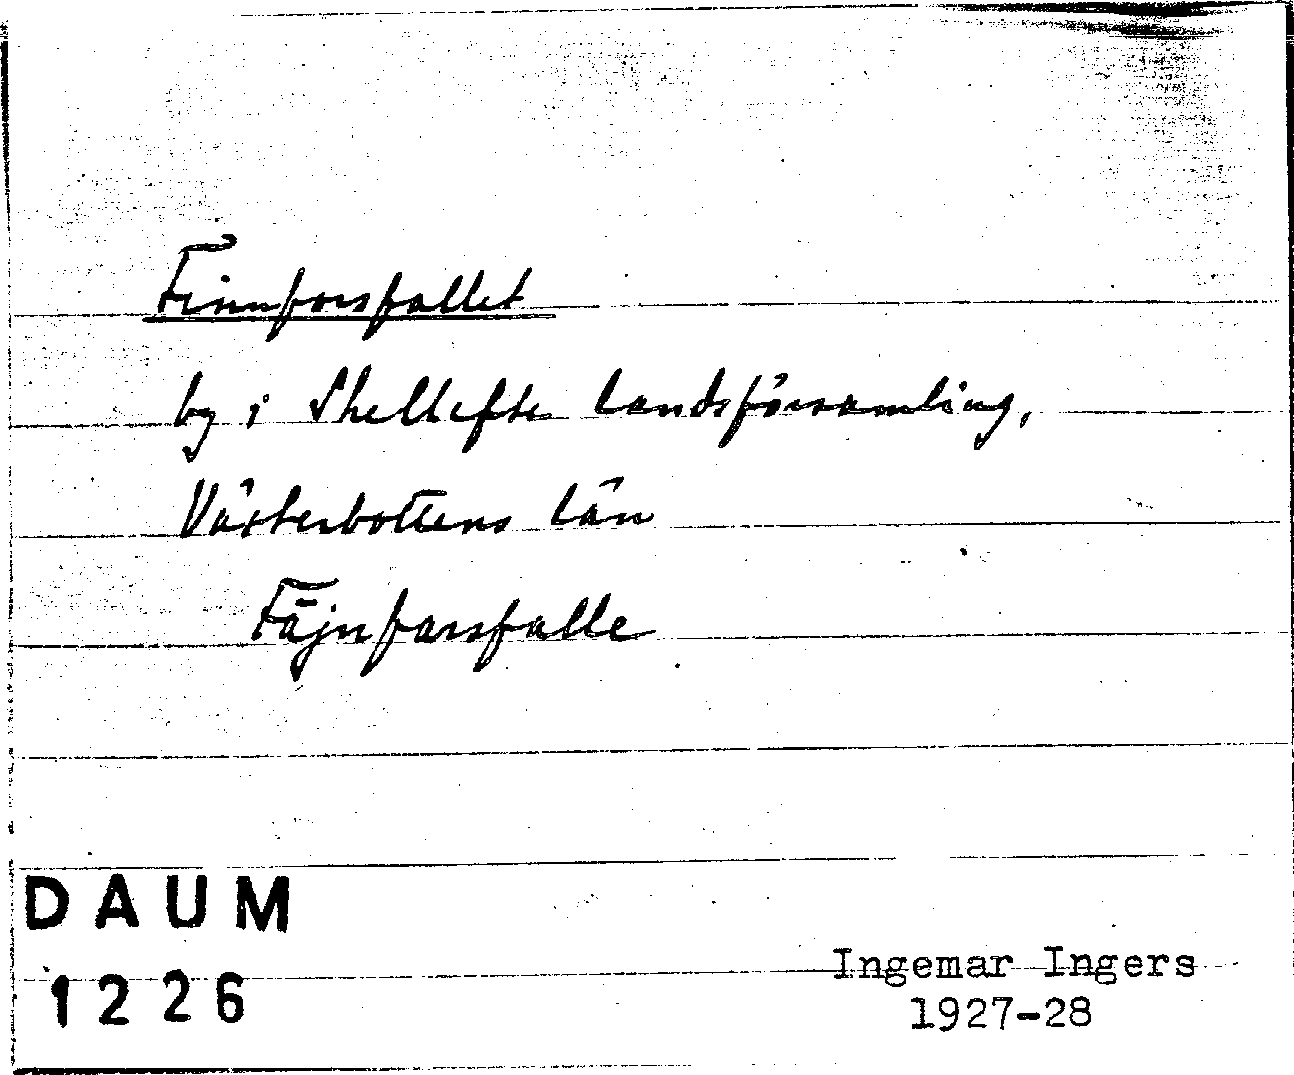 Finnforsfallet
by i Skellefte landsförsamling,
Västerbottens län
Fäjnfarsfalle
DAUM
1226
Ingemar Ingers
1927-28